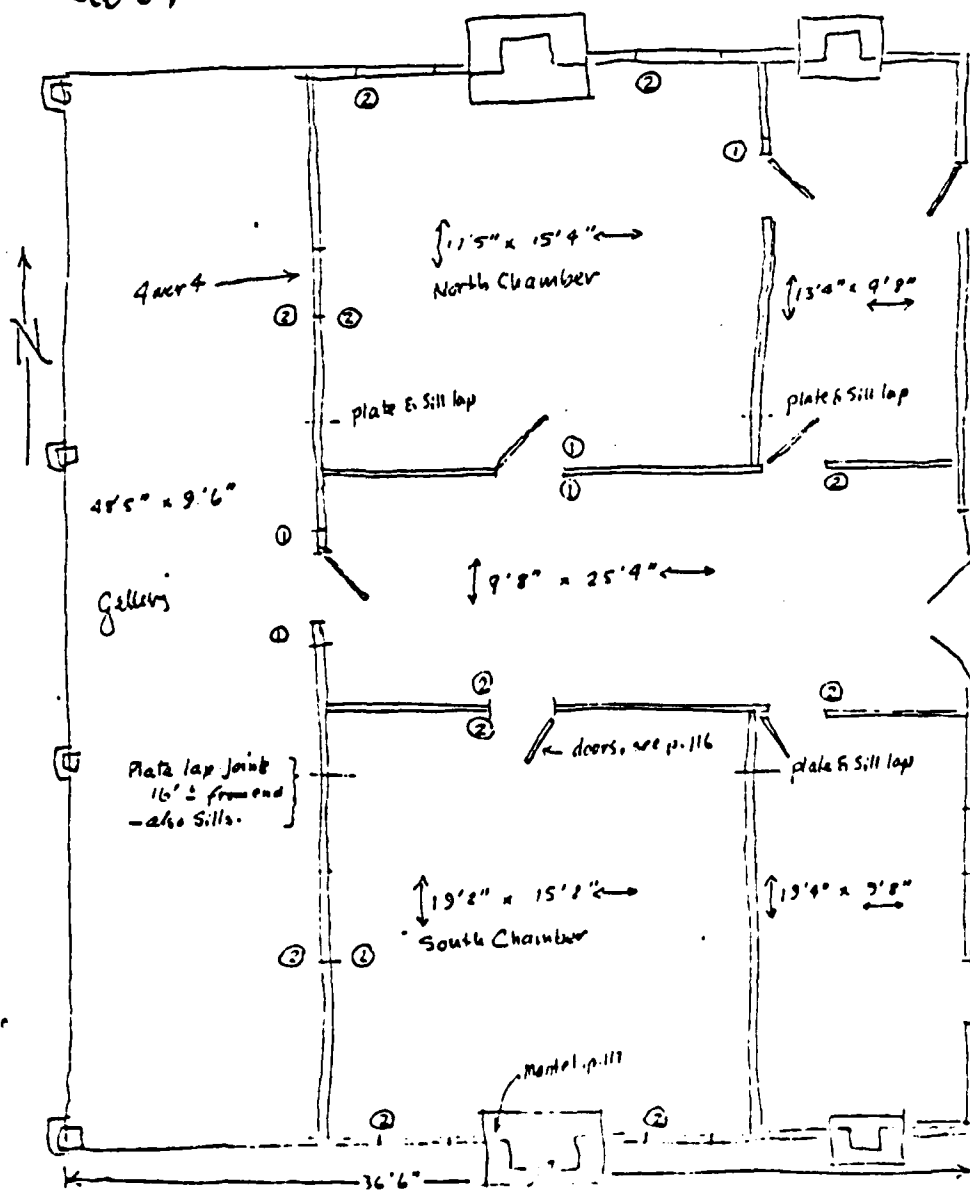 ②
②
①
17'5" x 15'4"
North Chamber
4 over 4
13'4" x 9'8"
N
② ②
plate & Sill lap
plate & Sill lap
①
①
②
48'5" x 9'6"
①
9'8" x 25'4"
Gallery
①
②
②
②
doors, see p.116
Plate lap joint
16' ± from end
- also Sills.
plate & Sill lap
19'8" x 15'8"
South Chamber
19'4" x 9'8"
② ②
Mantel, p.117
②
②
36'6"